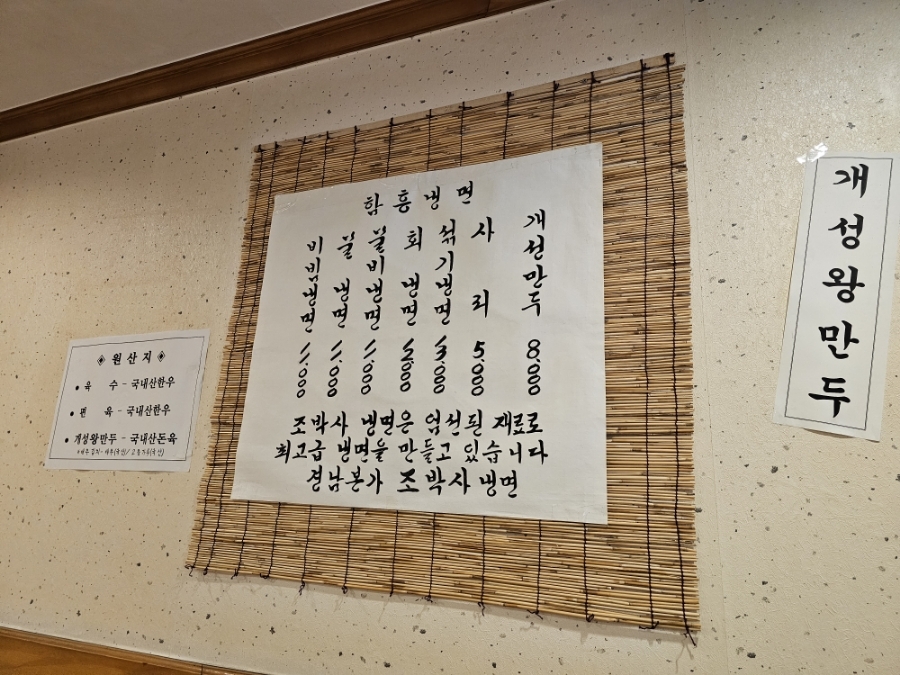 ◈ 원산지 ◈
● 육 수 - 국내산한우
● 편 육 - 국내산한우
● 개성왕만두 - 국내산돈육
함흥냉면
비빔냉면 11.000
물냉면 11.000
물비냉면 11.000
회냉면 12.000
섞기냉면 13.000
사리 5.000
개성만두 8.000
조박사 냉면은 엄선된 재료로
최고급 냉면을 만들고 있습니다
경남본가 조박사냉면
개성왕만두